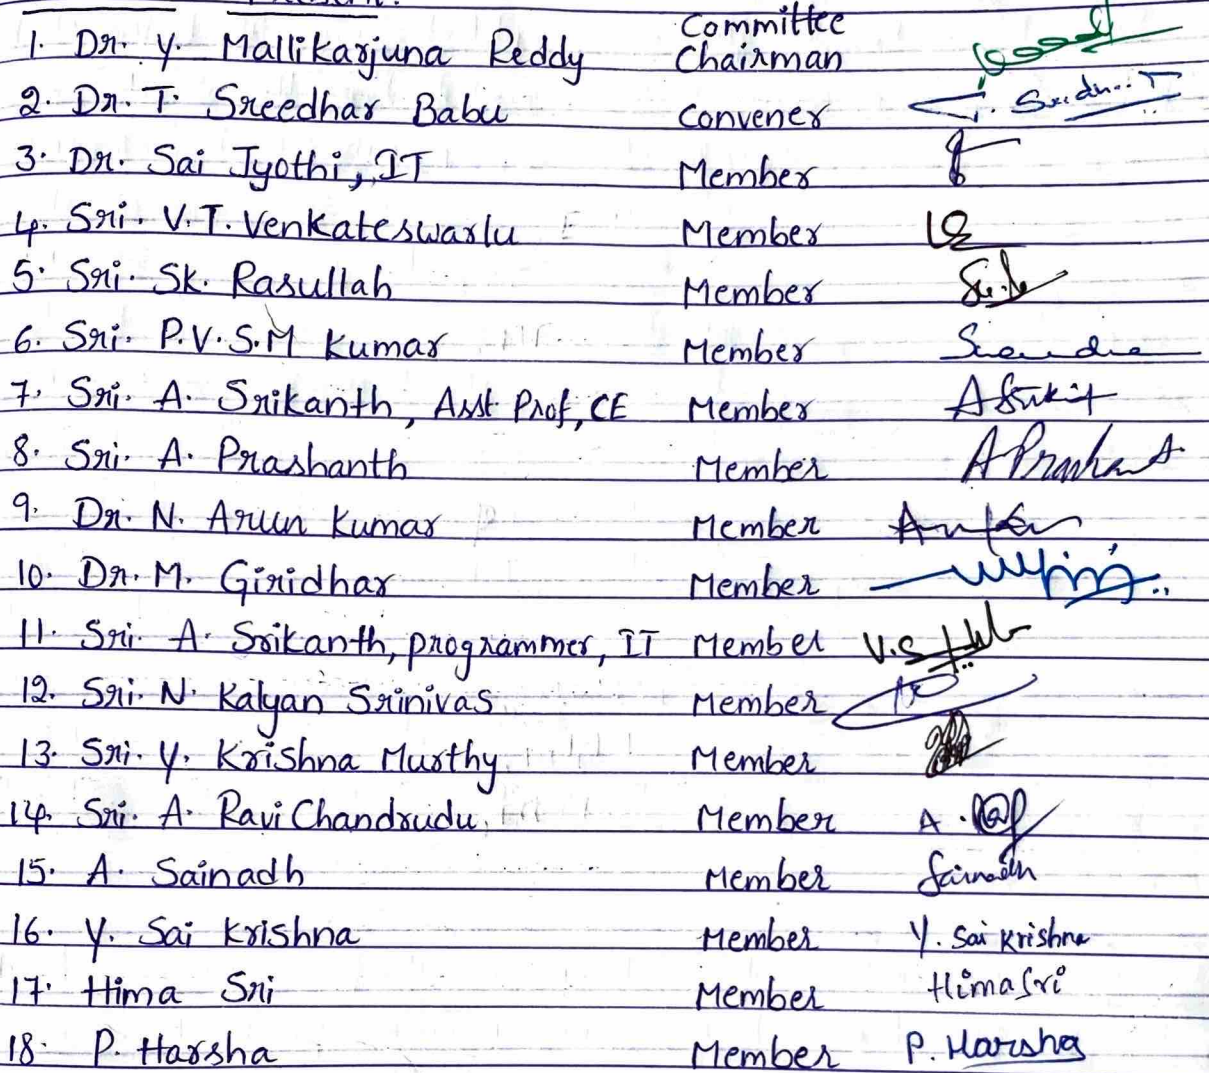 Committee
1. Dr. Y. Mallikarjuna Reddy Chairman
2. Dr. T. Sreedhar Babu Convener
3. Dr. Sai Jyothi, IT Member
4. Sri. V.T. Venkateswarlu Member
5. Sri. Sk. Rasullah Member
6. Sri. P.V.S.M Kumar Member
7. Sri. A. Srikanth, Asst Prof, CE Member
8. Sri. A. Prashanth Member A Prashant
9. Dr. N. Arun Kumar Member
10. Dr. M. Giridhar Member
11. Sri. A. Srikanth, programmer, IT Member
12. Sri. N. Kalyan Srinivas Member
13. Sri. Y. Krishna Murthy Member
14. Sri. A. Ravi Chandrudu Member A.
15. A. Sainadh Member Sainadh
16. Y. Sai Krishna Member Y. Sai Krishna
17. Hima Sri Member Hima Sri
18. P. Harsha Member P. Harsha